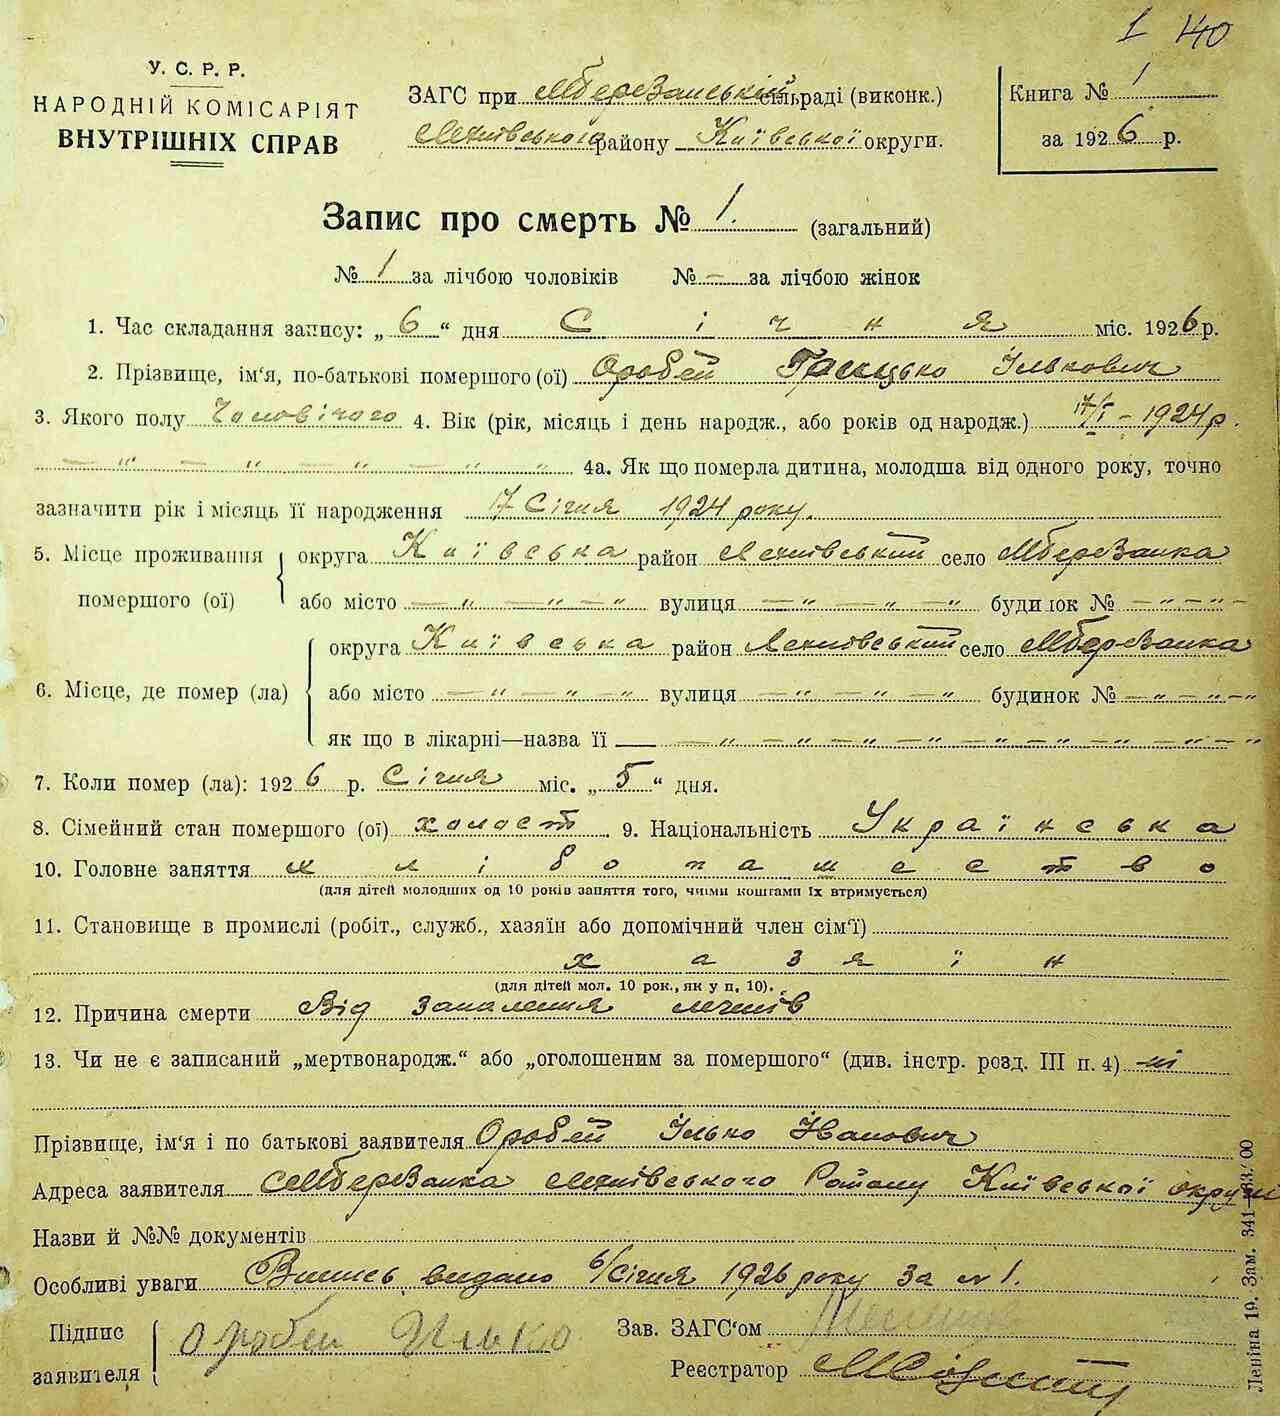 1 140
У. С. Р. Р.
НАРОДНІЙ КОМІСАРІЯТ
ВНУТРІШНІХ СПРАВ
ЗАГС при Мберезанській сільраді (виконк.)
району Київської округи.
Книга № 1
за 1926 р.
Запис про смерть № 1. (загальний)
№ 1 за лічбою чоловіків № – за лічбою жінок
1. Час складання запису: „ 6 “ дня Січня міс. 1926 р.
2. Прізвище, ім‘я, по-батькові помершого (ої) Оробей Грицько Ількович
3. Якого полу Чоловічого 4. Вік (рік, місяць і день народж., або років од народж.) 17/I – 1924 р.
— „ — „ — „ — „ — „ 4а. Як що померла дитина, молодша від одного року, точно
зазначити рік і місяць її народження 17 Січня 1924 року.
5. Місце проживання помершого (ої) округа Київська район село Мберезанка
або місто — „ — „ — „ вулиця — „ — „ — „ будинок № — „ — „ —
6. Місце, де помер (ла) округа Київська район село Мберезанка
або місто — „ — „ — „ вулиця — „ — „ — „ будинок № — „ — „ — „
як що в лікарні—назва її — „ — „ — „ — „ — „ — „ — „ — „
7. Коли помер (ла): 1926 р. Січня міс. „ 5 “ дня.
8. Сімейний стан помершого (ої) холост 9. Національність Українська
10. Головне заняття хлібопашество
(для дітей молодших од 10 років заняття того, чиїми коштами їх втримується)
11. Становище в промислі (робіт., служб., хазяїн або допомічний член сім‘ї)
хазяїн
(для дітей мол. 10 рок., як у п. 10).
12. Причина смерти Від запалення легнів
13. Чи не є записаний „мертвонародж.“ або „оголошеним за помершого“ (див. інстр. розд. III п. 4) ні
Прізвище, ім‘я і по батькові заявителя Оробей Ілько Іванович
Адреса заявителя Мберезанка Району Київської округи
Назви й №№ документів
Особливі уваги Випись видано 6/Січня 1926 року за № 1.
Підпис заявителя Оробей Илько
Зав. ЗАГС‘ом
Реєстратор
Леніна 19. Зам. 341